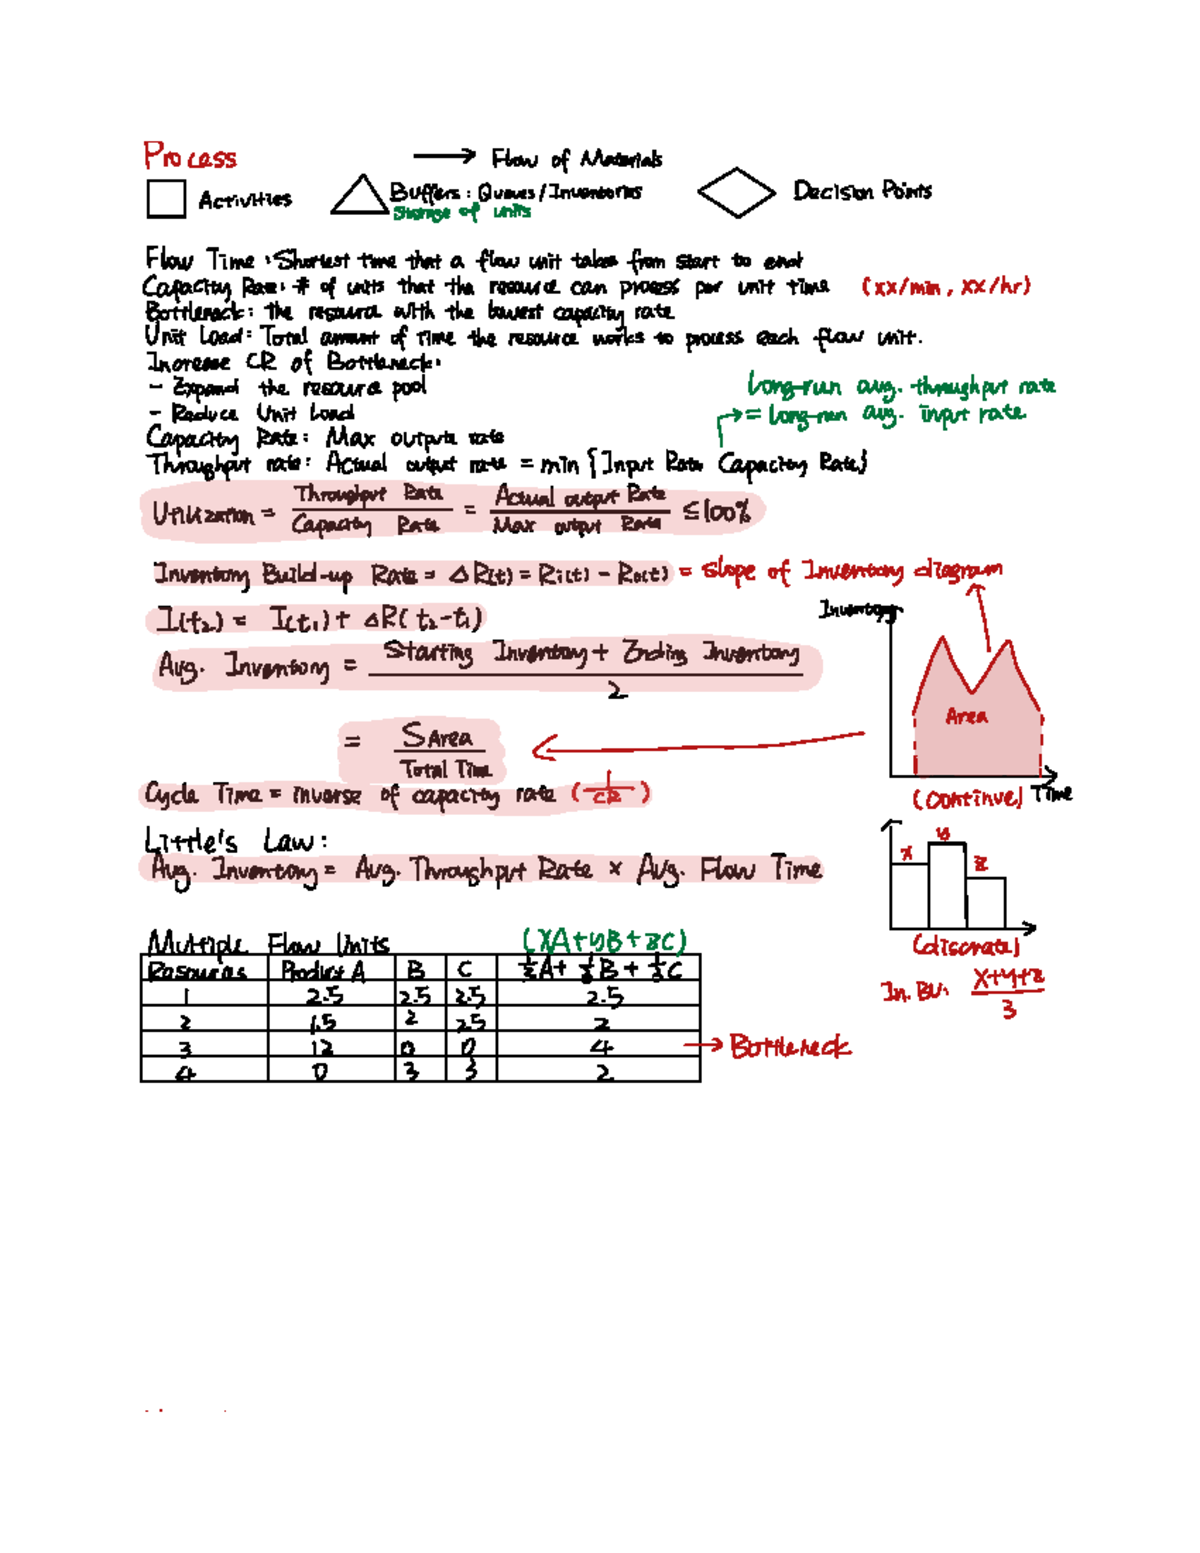 Process
→ Flow of Materials
Activities
Buffers: Queues/Inventories
Storage of units
Decision Points
Flow Time: Shortest time that a flow unit takes from start to end
Capacity Rate: # of units that the resource can process per unit time (xx/min, xx/hr)
Bottleneck: the resource with the lowest capacity rate
Unit Load: Total amount of time the resource works to process each flow unit.
Increase CR of Bottleneck:
- Expand the resource pool
- Reduce Unit Load
Long-run avg. throughput rate
= long-run avg. input rate
Capacity Rate: Max output rate
Throughput rate: Actual output rate = min {Input Rate Capacity Rate}
Utilization = Throughput Rate / Capacity Rate = Actual output Rate / Max output Rate ≤ 100%
Inventory Build-up Rate = ΔR(t) = Ri(t) - Ro(t) = slope of Inventory diagram
I(t2) = I(t1) + ΔR(t2-t1)
Avg. Inventory = Starting Inventory + Ending Inventory / 2
= S Area / Total Time
Inventory
Area
(continue) Time
Cycle Time = inverse of capacity rate (1/CR)
Little's Law:
Avg. Inventory = Avg. Throughput Rate × Avg. Flow Time
x y z
(discrete)
In. BU: x+y+z / 3
Multiple Flow Units (XA+yB+zC)
Resources Product A B C ½A+ B+ C
1 2.5 2.5 2.5 2.5
2 1.5 2 2.5 2
3 12 0 0 4 → Bottleneck
4 0 3 3 2